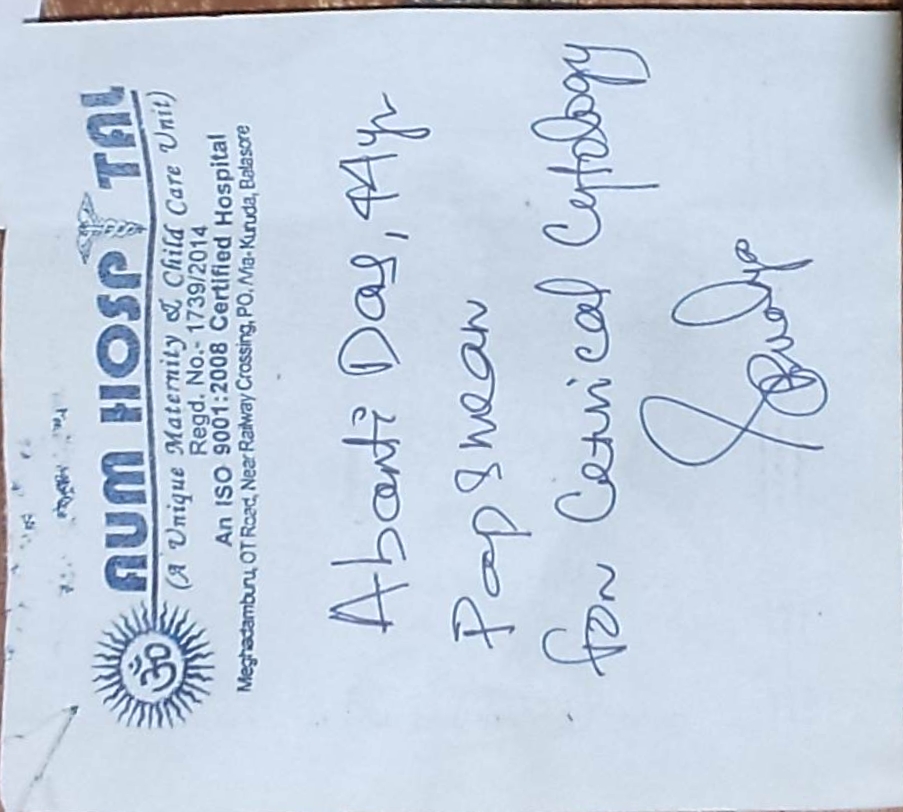 AUM HOSPITAL
(A Unique Maternity & Child Care Unit)
Regd. No.- 1739/2014
An ISO 9001:2008 Certified Hospital
Meghadamburu, OT Road, Near Railway Crossing, PO, /Via-Kuruda, Balasore
Abanti Das, 44yr
Pap smear
for Cervical Cytology